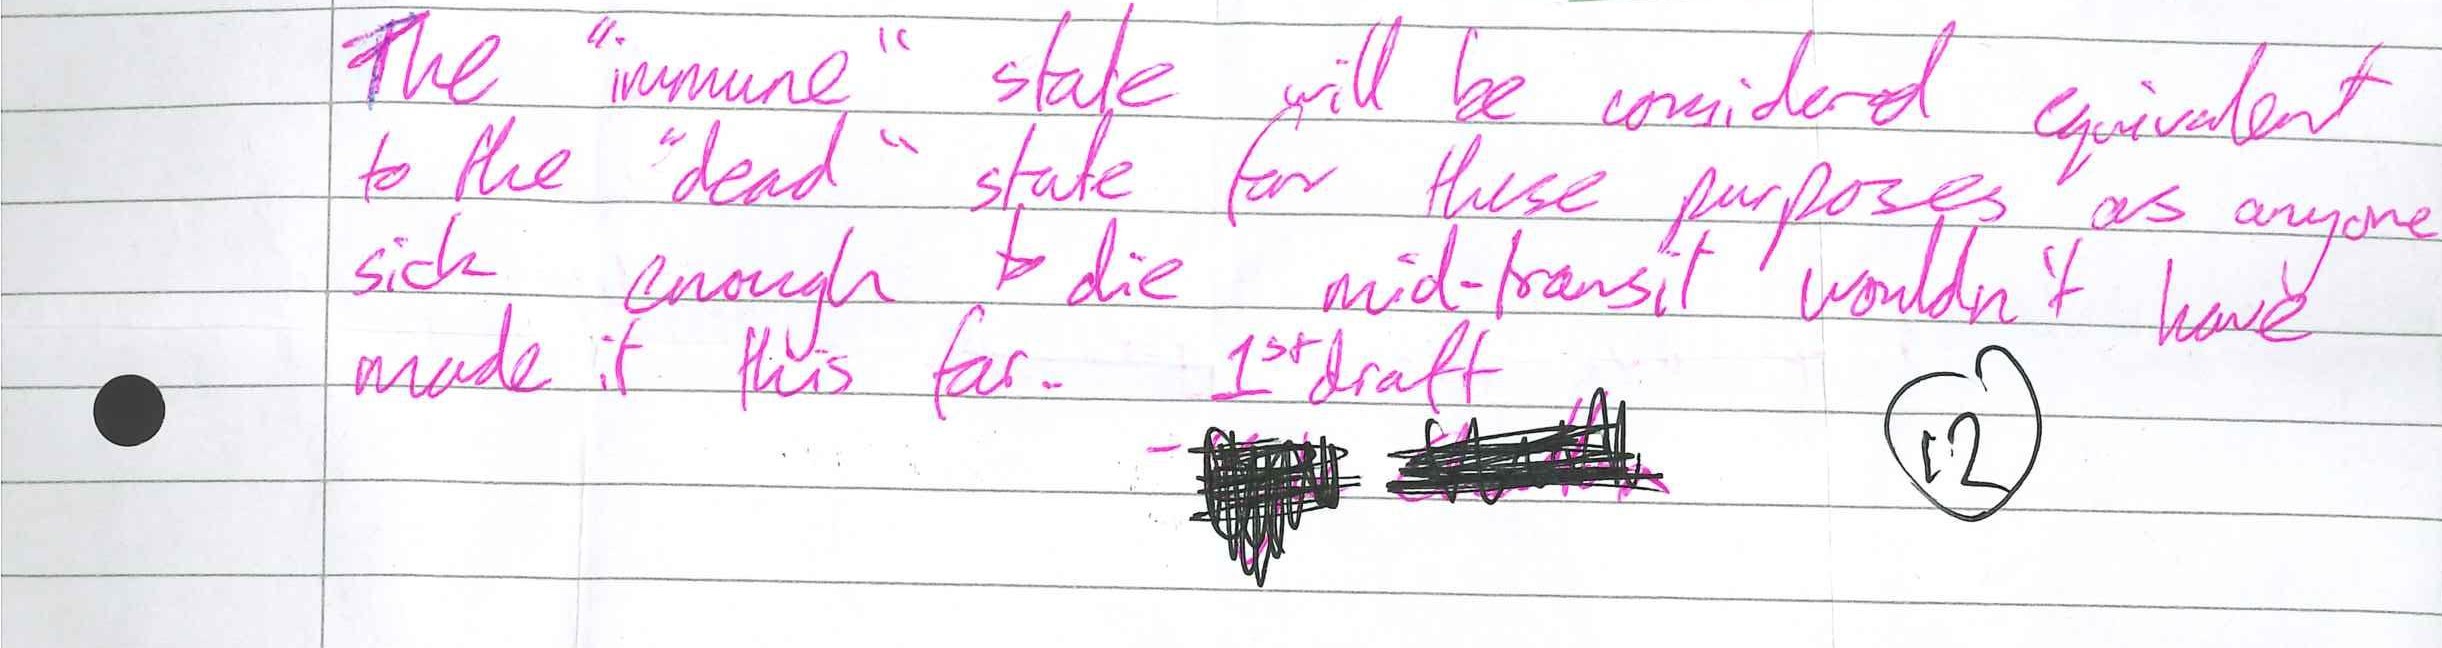 The "immune" state will be considered equivalent
to the "dead" state for these purposes as anyone
sick enough to die mid-transit wouldn't have
made it this far. 1st draft
-
12